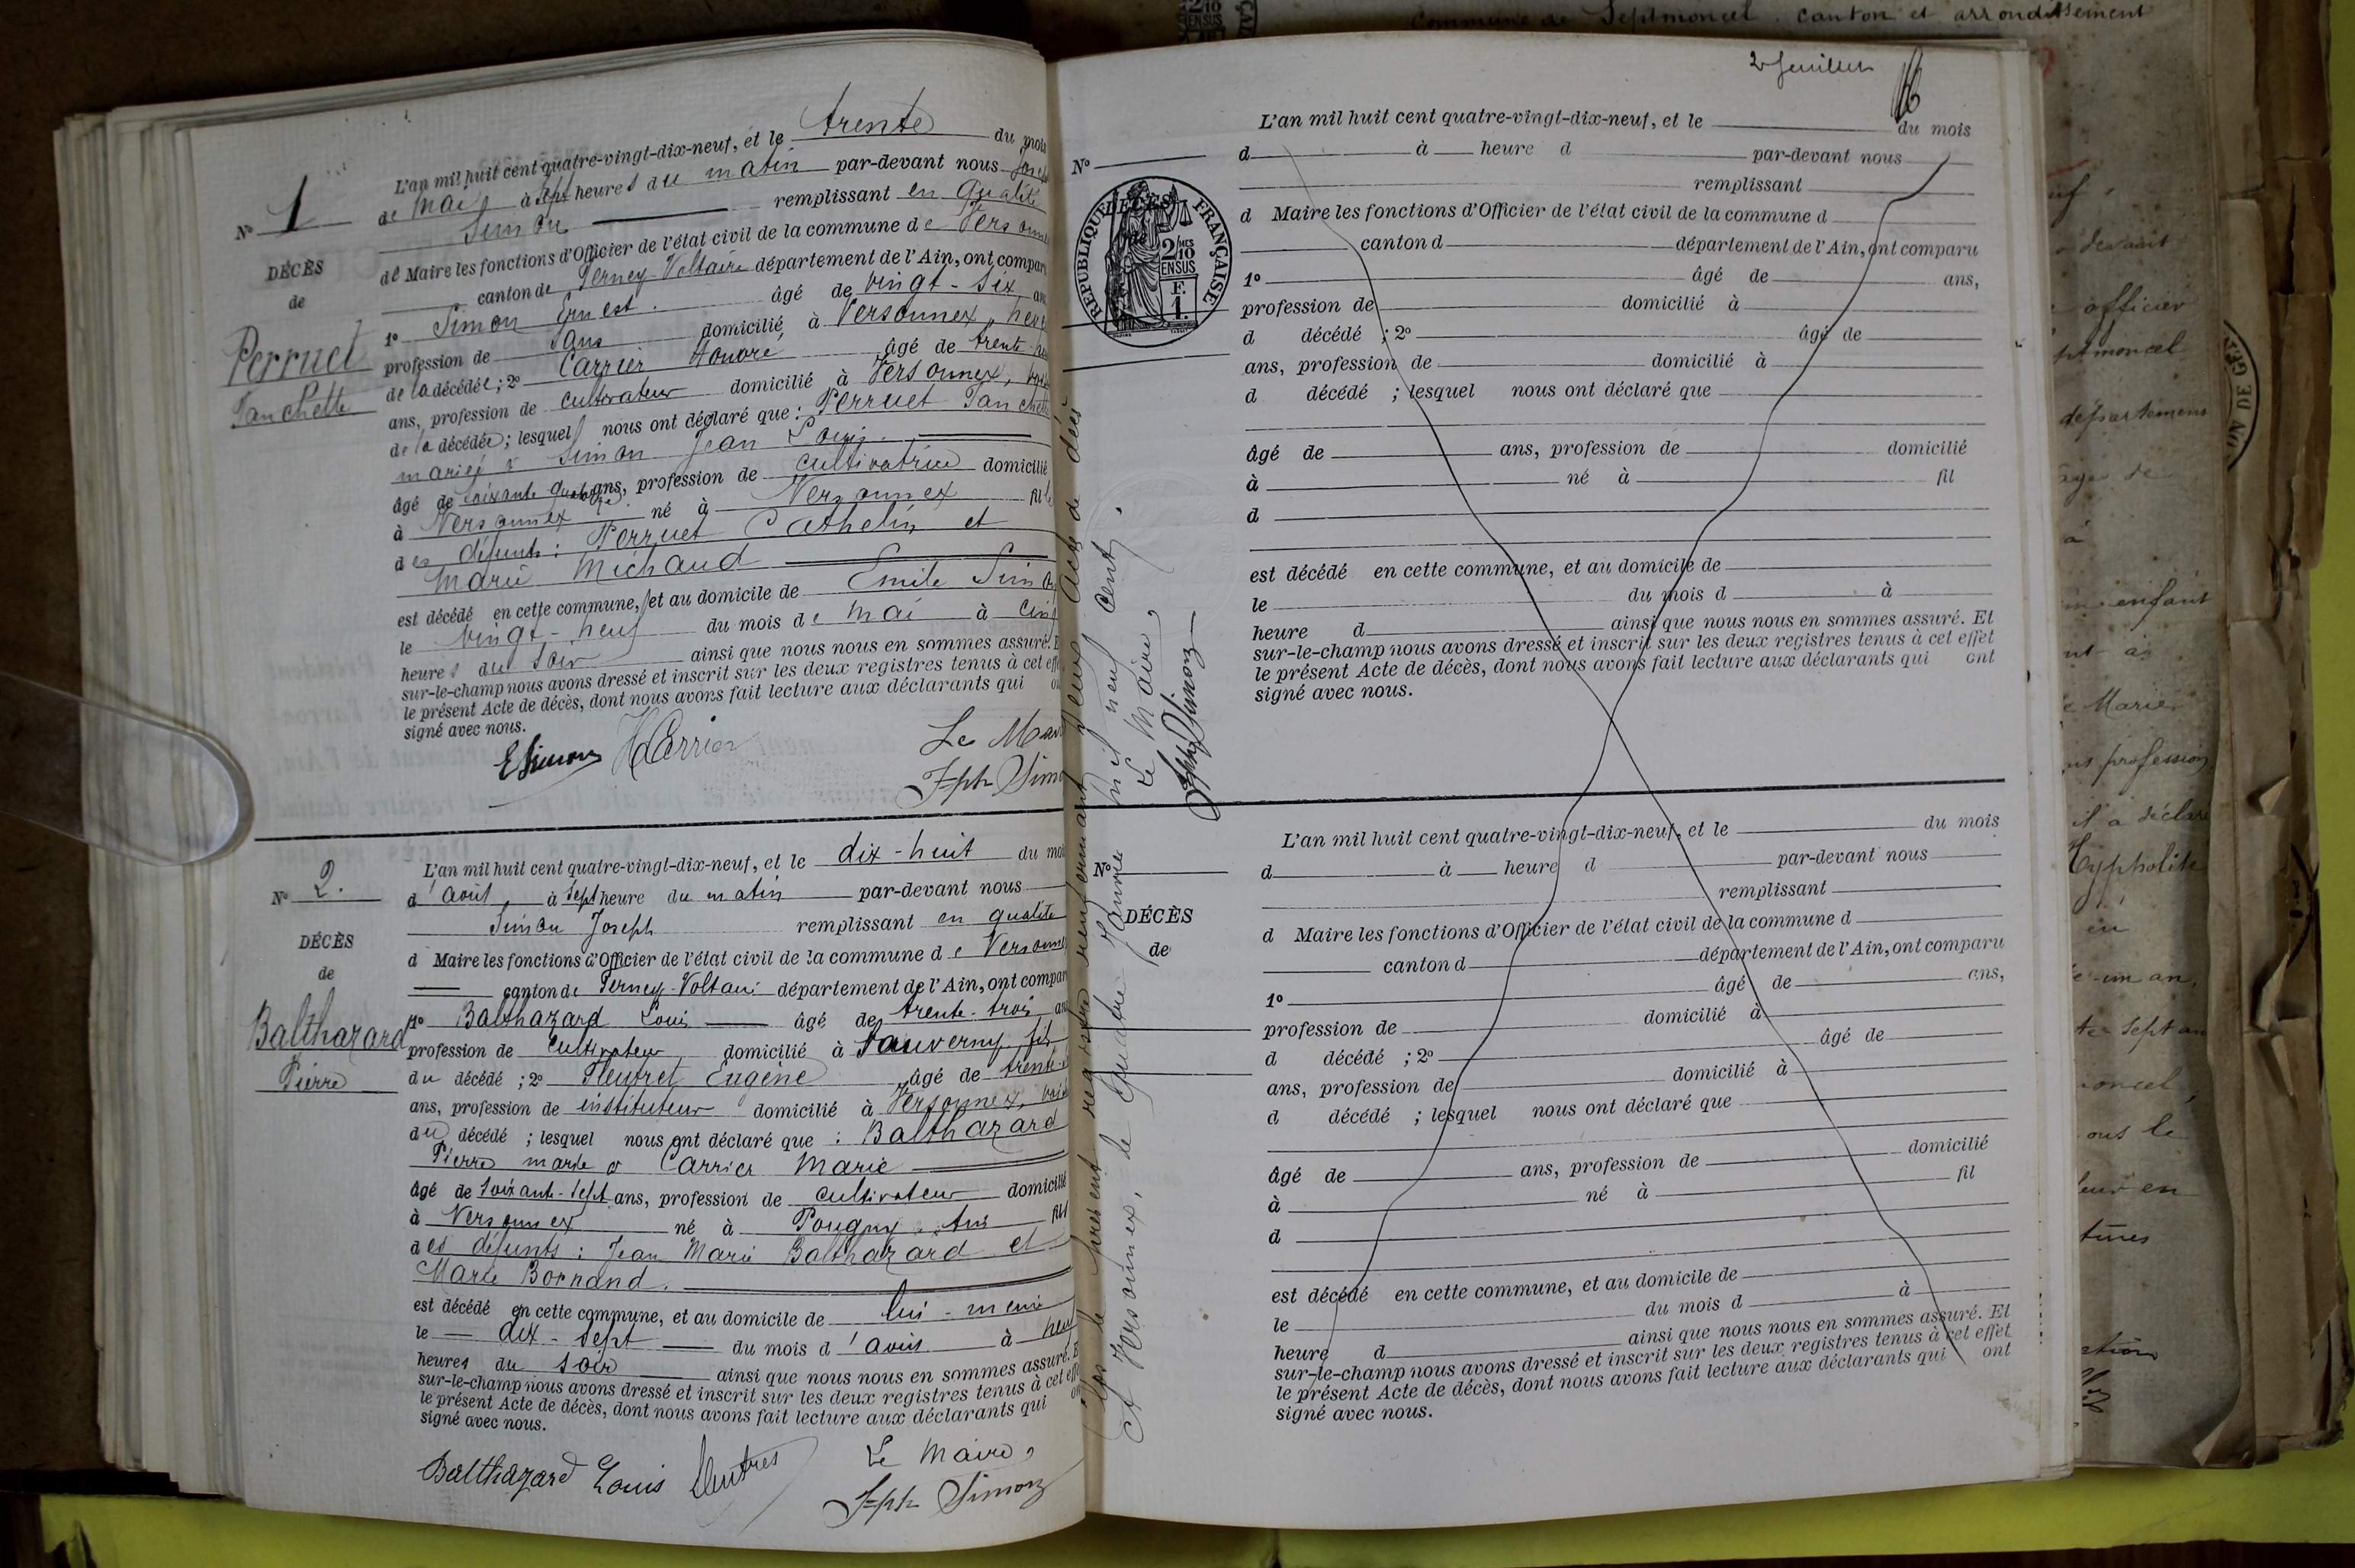 Commune de Septmoncel. canton et arrondissement
N° 1
DÉCÈS
de
Perruet
Fanchette
L'an mil huit cent quatre-vingt-dix-neuf, et le trente du mois
de Mai à sept heures du matin par-devant nous Joseph
Simon remplissant en qualité
de Maire les fonctions d'Officier de l'état civil de la commune de Versonnex
canton de Ferney-Voltaire département de l'Ain, ont comparu
1° Simon Ernest. âgé de vingt-six ans
profession de sans domicilié à Versonnex, neveu
de la décédée; 2° Carrier Honoré âgé de trente
ans, profession de cultivateur domicilié à Versonnex,
de la décédée; lesquels nous ont déclaré que: Perruet Fanchette
mariée à Simon Jean Louis.
âgé de soixante quatorze ans, profession de cultivatrice domicilié
à Versonnex né à Versonnex fille
des défunts: Perruet Cathelin et
Marie Michaud
est décédé en cette commune, et au domicile de Emile Simon
le vingt-neuf du mois de Mai à cinq
heures du soir ainsi que nous nous en sommes assuré. Et
sur-le-champ nous avons dressé et inscrit sur les deux registres tenus à cet effet
le présent Acte de décès, dont nous avons fait lecture aux déclarants qui ont
signé avec nous.
ESimon HCarrier
Le Maire
Jph Simon
N° 2.
DÉCÈS
de
Balthazard
Pierre
L'an mil huit cent quatre-vingt-dix-neuf, et le dix-huit du mois
d'août à sept heure du matin par-devant nous
Simon Joseph remplissant en qualité
d Maire les fonctions d'Officier de l'état civil de la commune de Versonnex
canton de Ferney-Voltaire département de l'Ain, ont comparu
1° Balthazard Louis âgé de trente-trois ans
profession de cultivateur domicilié à Sauverny fils
du décédé; 2° Fleutret Eugène âgé de trente
ans, profession de instituteur domicilié à Versonnex,
du décédé; lesquel nous ont déclaré que: Balthazard
Pierre marié à Carrier Marie
âgé de soixante-sept ans, profession de cultivateur domicilié
à Versonnex né à Pougny. Ain fils
des défunts: Jean Marie Balthazard et
Marie Bornand.
est décédé en cette commune, et au domicile de lui-même
le dix-sept du mois d'août à neuf
heures du soir ainsi que nous nous en sommes assuré. Et
sur-le-champ nous avons dressé et inscrit sur les deux registres tenus à cet effet
le présent Acte de décès, dont nous avons fait lecture aux déclarants qui ont
signé avec nous.
Balthazard Louis
Le Maire,
Jph Simon
Clos le présent registre renfermant deux Acte de décès
A Versonnex, le quatre Janvier mil neuf cent.
Le Maire,
Joseph Simon
2 feuillets
N°
RÉPUBLIQUE FRANÇAISE
DÉCÈS
de
2/10 MES
EN SUS
F.
1.
L'an mil huit cent quatre-vingt-dix-neuf, et le du mois
d à heure d par-devant nous
remplissant
d Maire les fonctions d'Officier de l'état civil de la commune d
canton d département de l'Ain, ont comparu
1° âgé de ans,
profession de domicilié à
d décédé ; 2° âgé de
ans, profession de domicilié à
d décédé ; lesquel nous ont déclaré que
âgé de ans, profession de domicilié
à né à fil
d
est décédé en cette commune, et au domicile de
le du mois d à
heure d ainsi que nous nous en sommes assuré. Et
sur-le-champ nous avons dressé et inscrit sur les deux registres tenus à cet effet
le présent Acte de décès, dont nous avons fait lecture aux déclarants qui ont
signé avec nous.
N°
DÉCÈS
de
L'an mil huit cent quatre-vingt-dix-neuf, et le du mois
d à heure d par-devant nous
remplissant
d Maire les fonctions d'Officier de l'état civil de la commune d
canton d département de l'Ain, ont comparu
1° âgé de ans,
profession de domicilié à
d décédé ; 2° âgé de
ans, profession de domicilié à
d décédé ; lesquel nous ont déclaré que
âgé de ans, profession de domicilié
à né à fil
d
est décédé en cette commune, et au domicile de
le du mois d à
heure d ainsi que nous nous en sommes assuré. Et
sur-le-champ nous avons dressé et inscrit sur les deux registres tenus à cet effet
le présent Acte de décès, dont nous avons fait lecture aux déclarants qui ont
signé avec nous.
officier
Septmoncel
département
âgé de
à
enfant
Marie
profession
il a déclaré
Hyppolite
un an